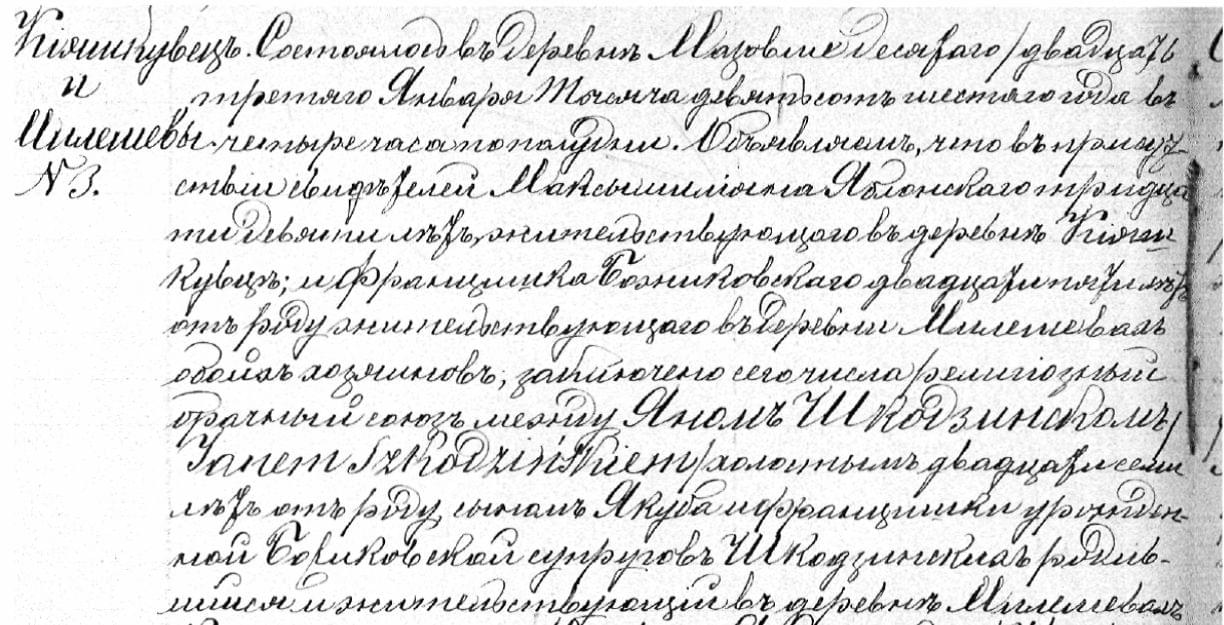 Кіянкувецъ. Состоялось въ деревнѣ Мазовше десятаго / двадцать
и третяго Января Тысяча девятьсотъ шестаго года въ
Милешевы. четыре часа пополудни. Объявляемъ, что въ присут-
N 3. ствіи свидѣтелей Максыминіана Яблонскаго тридца
ти девяти лѣтъ, жительствующаго въ деревнѣ Кіян-
кувцъ; и Францишка Бониковскаго двадцати пяти лѣтъ
отъ роду жительствующаго въ деревни Милешевахъ
обоихъ хозяиновъ, заключено сего числа религіозный
брачный союзъ между Яномъ Шкодзинскомъ /
Janem Szkodzińskiem / холостымъ двадцати семи
лѣтъ отъ роду, сыномъ Якуба и Францишки урожден-
ной супруговъ Шкодзинскихъ родив-
шимся и жительствующій въ деревнѣ Милешевахъ